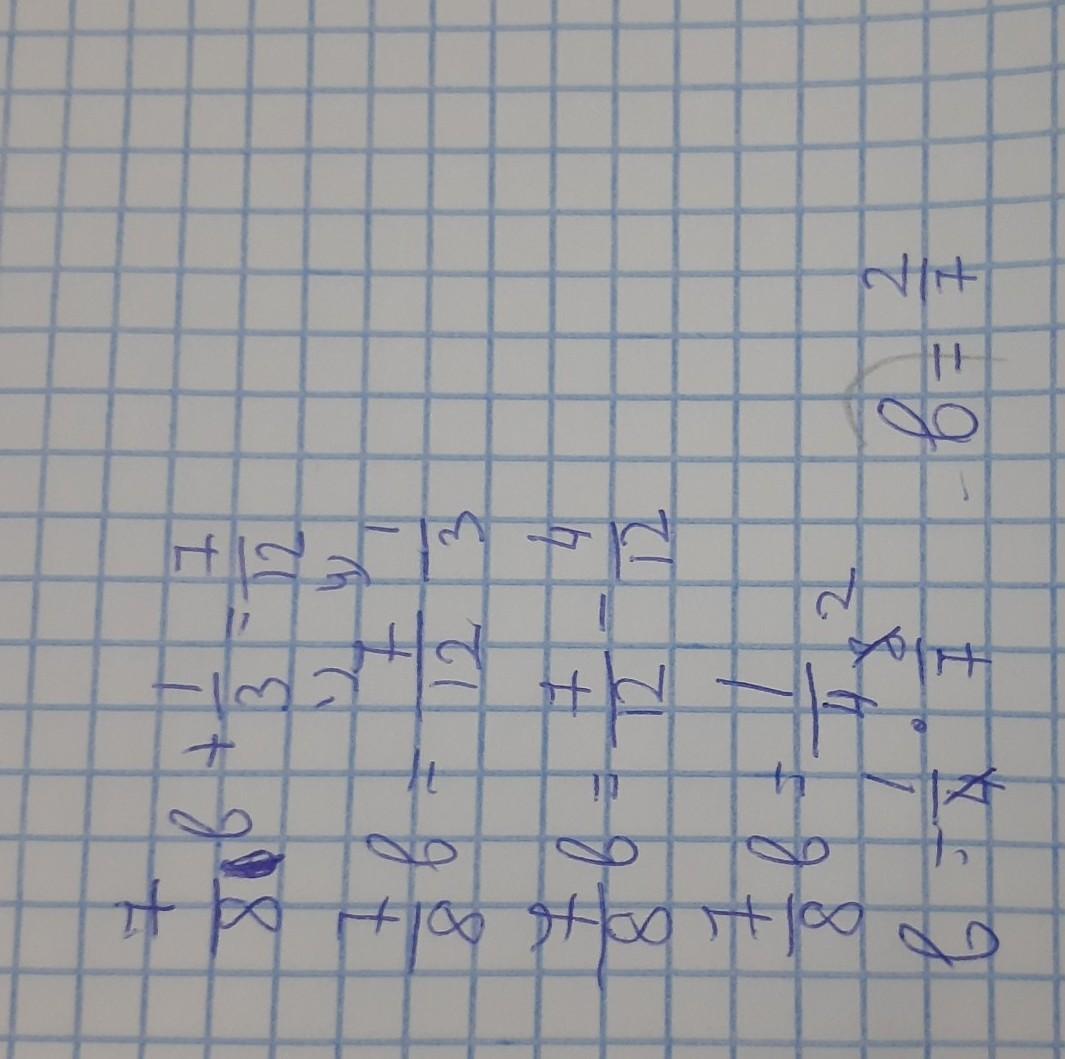 7/8 b + 1/3 = 7/12
7/8 b = 7/12 - 1/3 4
7/8 b = 7/12 - 4/12
7/8 b = 1/4
b = 1/4 · 8/7 2 b = 2/7